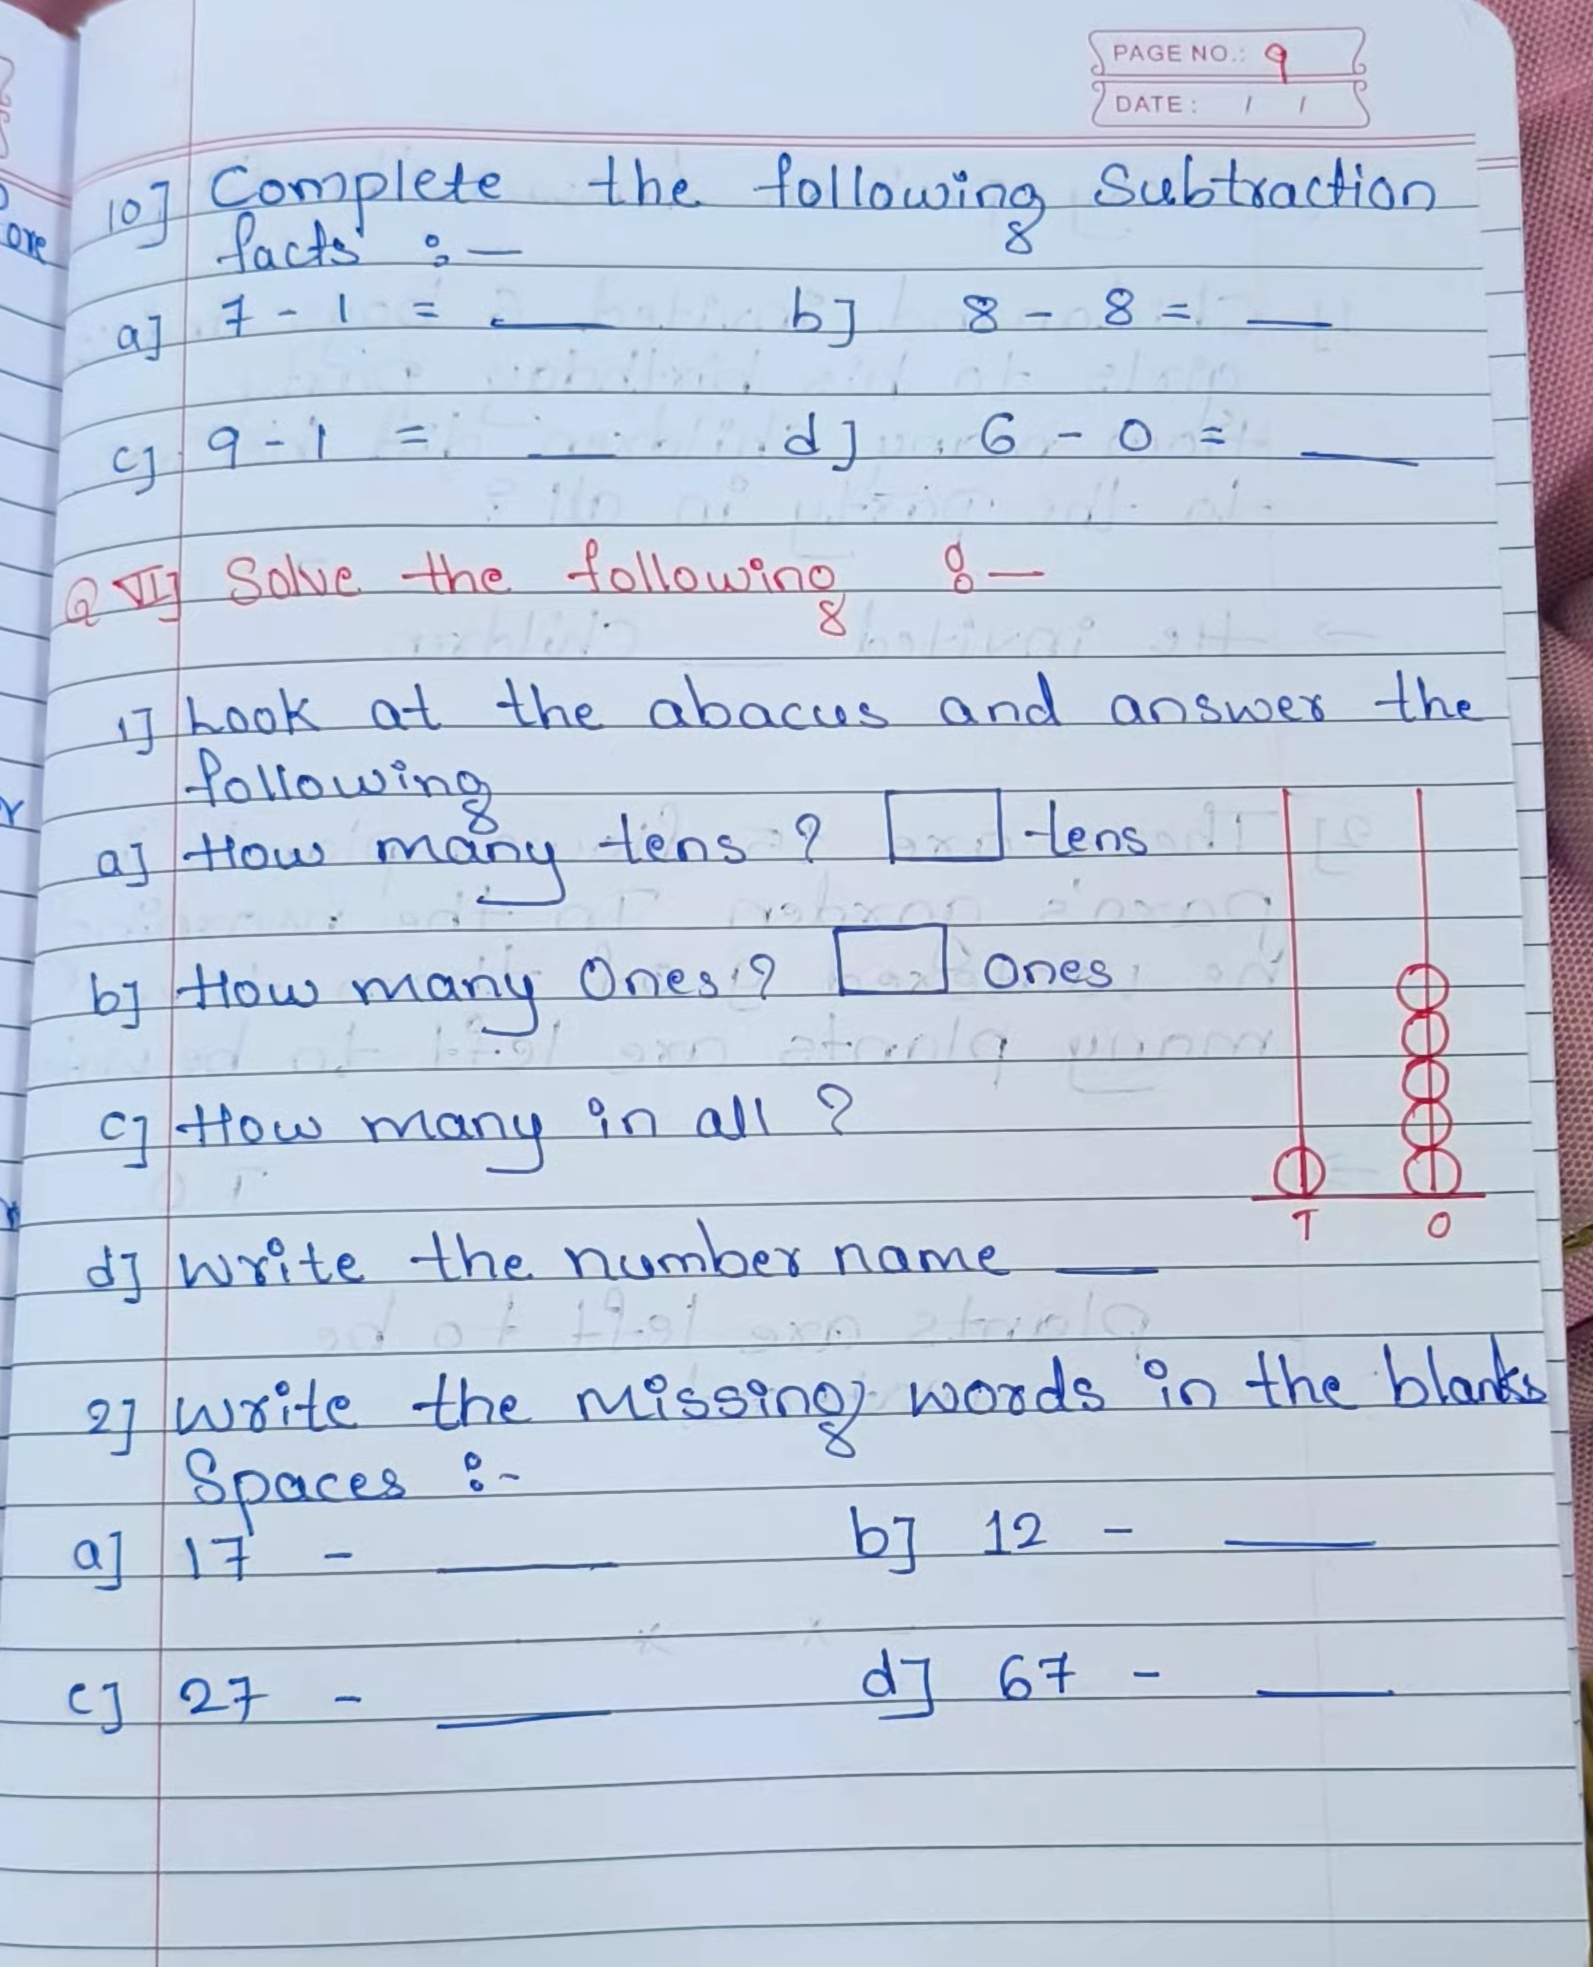 PAGE NO.: 9
DATE: / /
10] Complete the following Subtraction
facts :-
a] 7 - 1 = ___ b] 8 - 8 = ___
c] 9 - 1 = ___ d] 6 - 0 = ___
Q VI] Solve the following :-
1] Look at the abacus and answer the
following
a] How many tens ? tens
b] How many Ones ? Ones
c] How many in all ?
T O
d] Write the number name ___
2] Write the Missing words in the blanks
Spaces :-
a] 17 - ___ b] 12 - ___
c] 27 - ___ d] 67 - ___